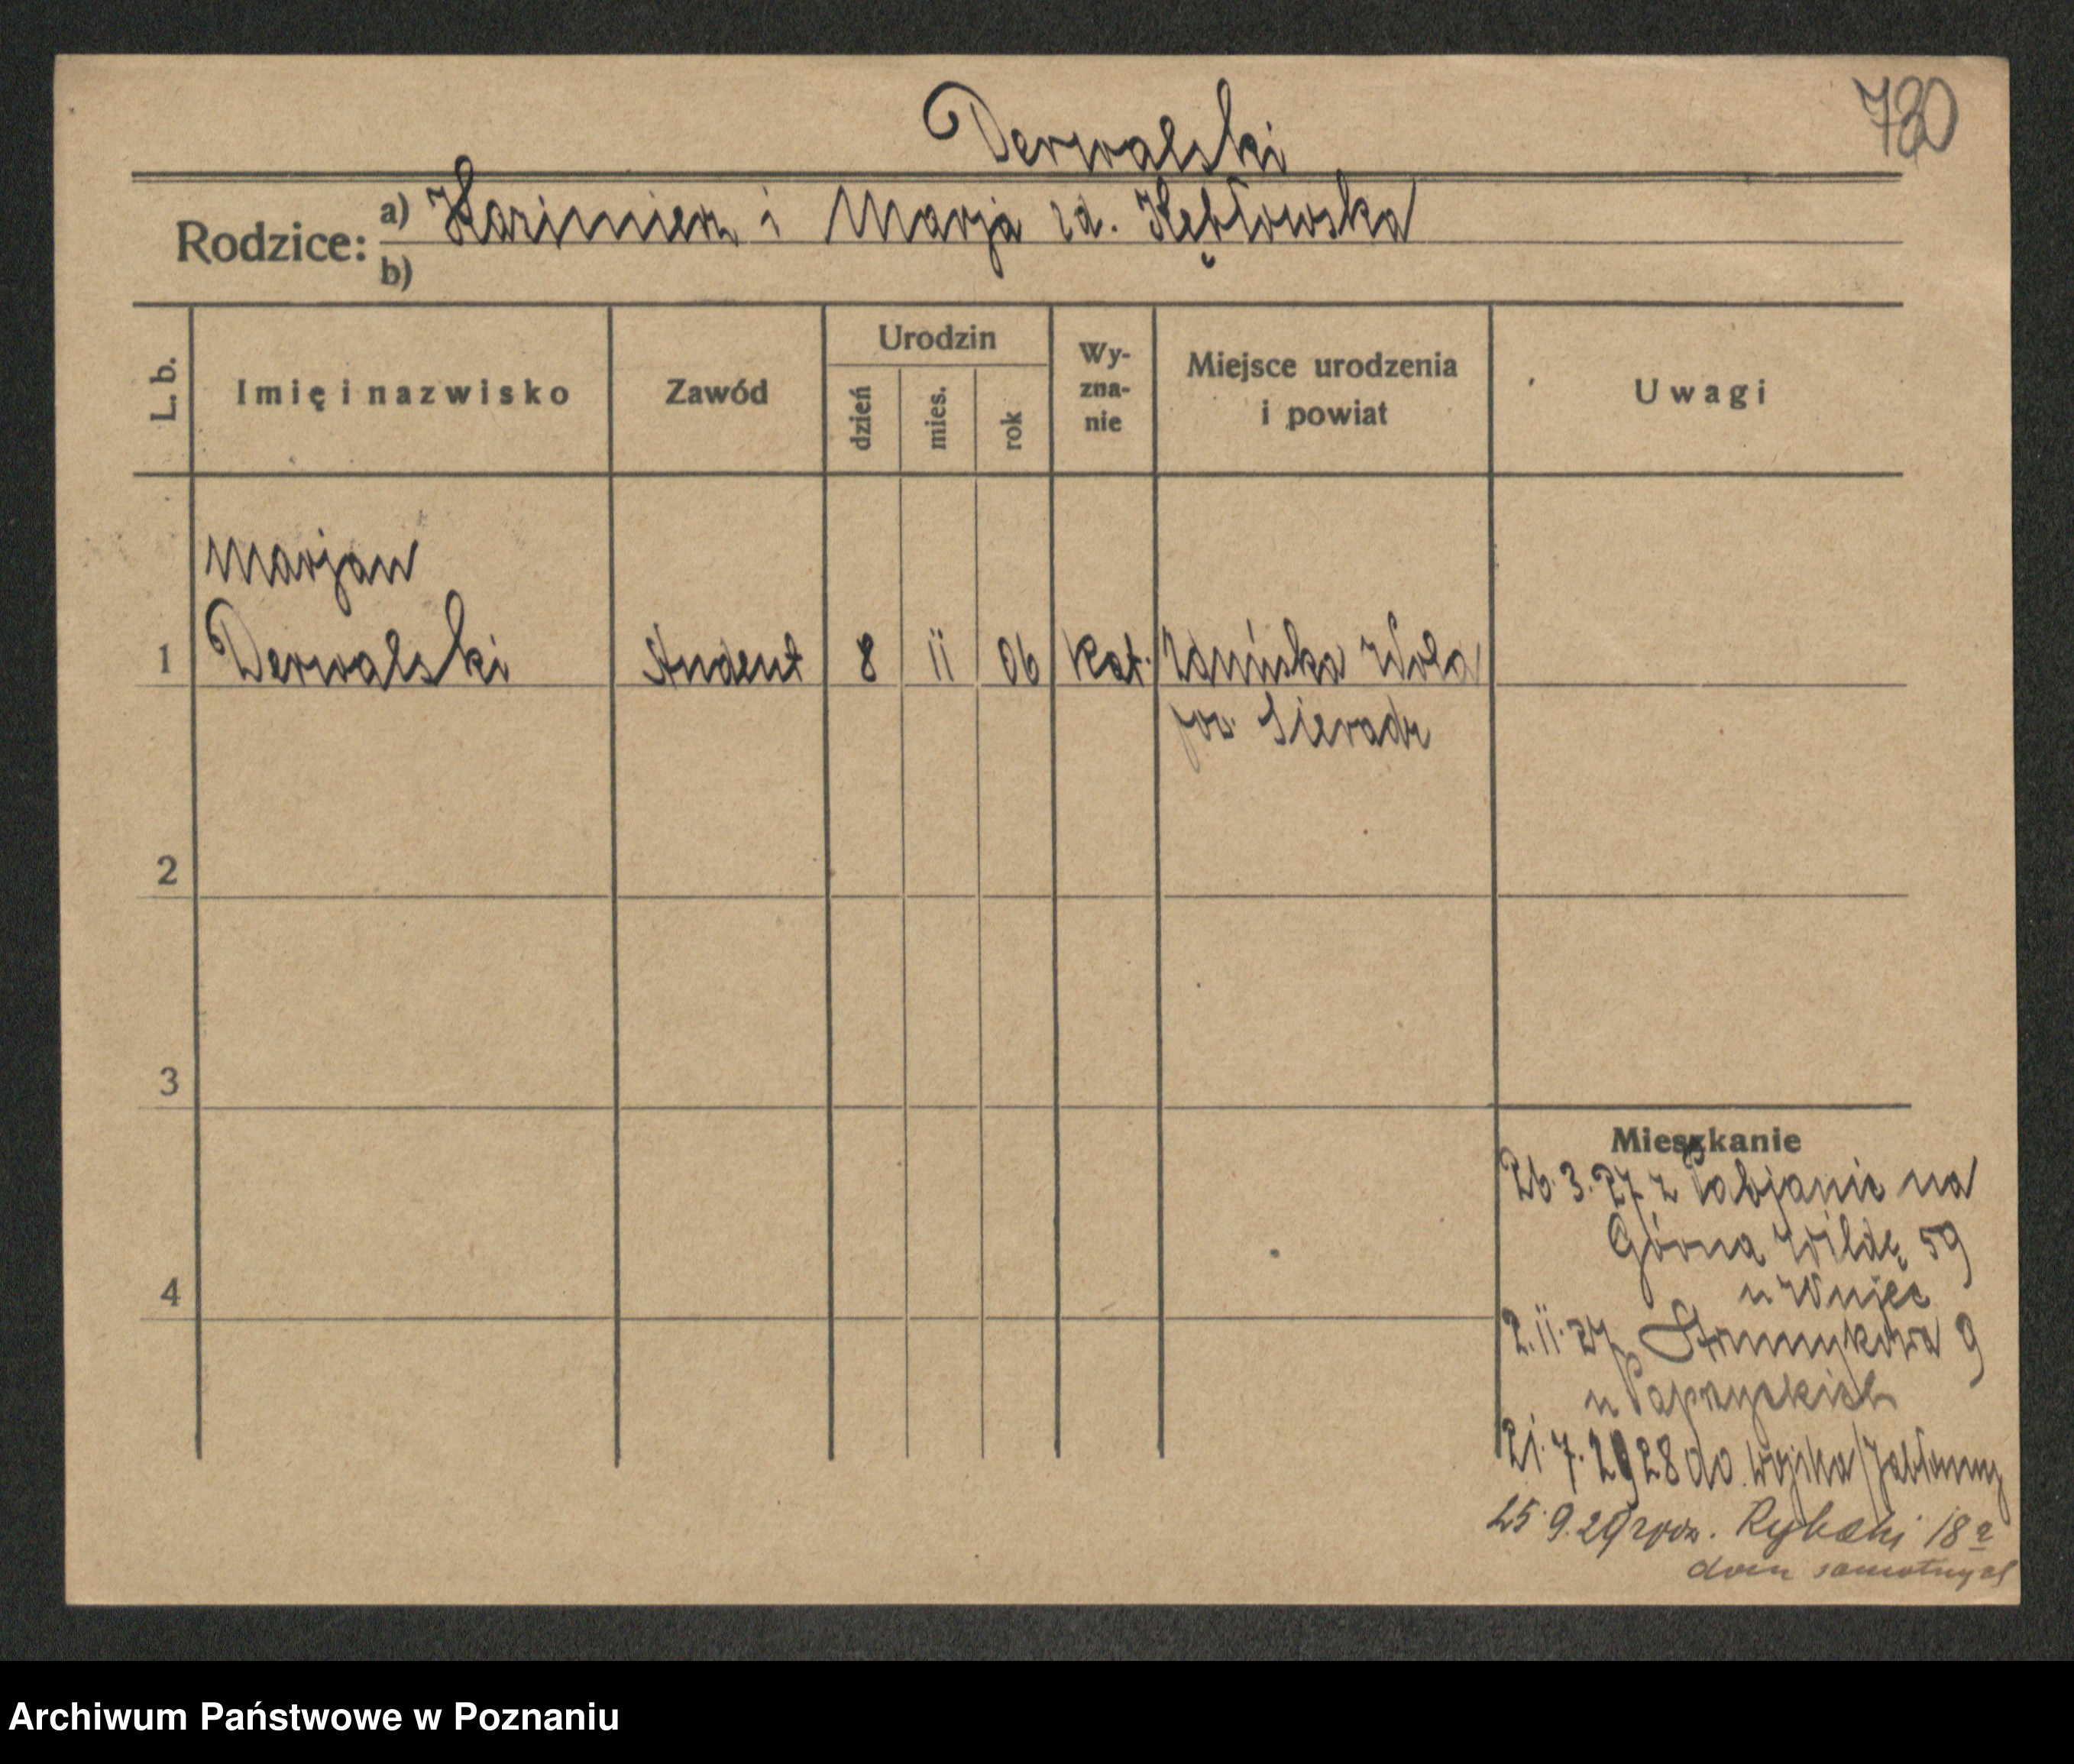 Derwalski
730
Rodzice: a) Kazimierz i Marja zd. Kębłowska
b)
L. b. Imię i nazwisko Zawód Urodzin dzień mies. rok Wyznanie Miejsce urodzenia i powiat Uwagi
Marjan
1 Derwalski student 8 11 06 kat. Zduńska Wola
pow. Sieradz
2
3
Mieszkanie
26.3.27 z Pabjanic na
Górną Wildę 59
4
2.11.27 Strumykowa 9
21.7.1928 do wojska / Jabłonny
25.9.29 Rybaki 18a
dom samotnych
Archiwum Państwowe w Poznaniu